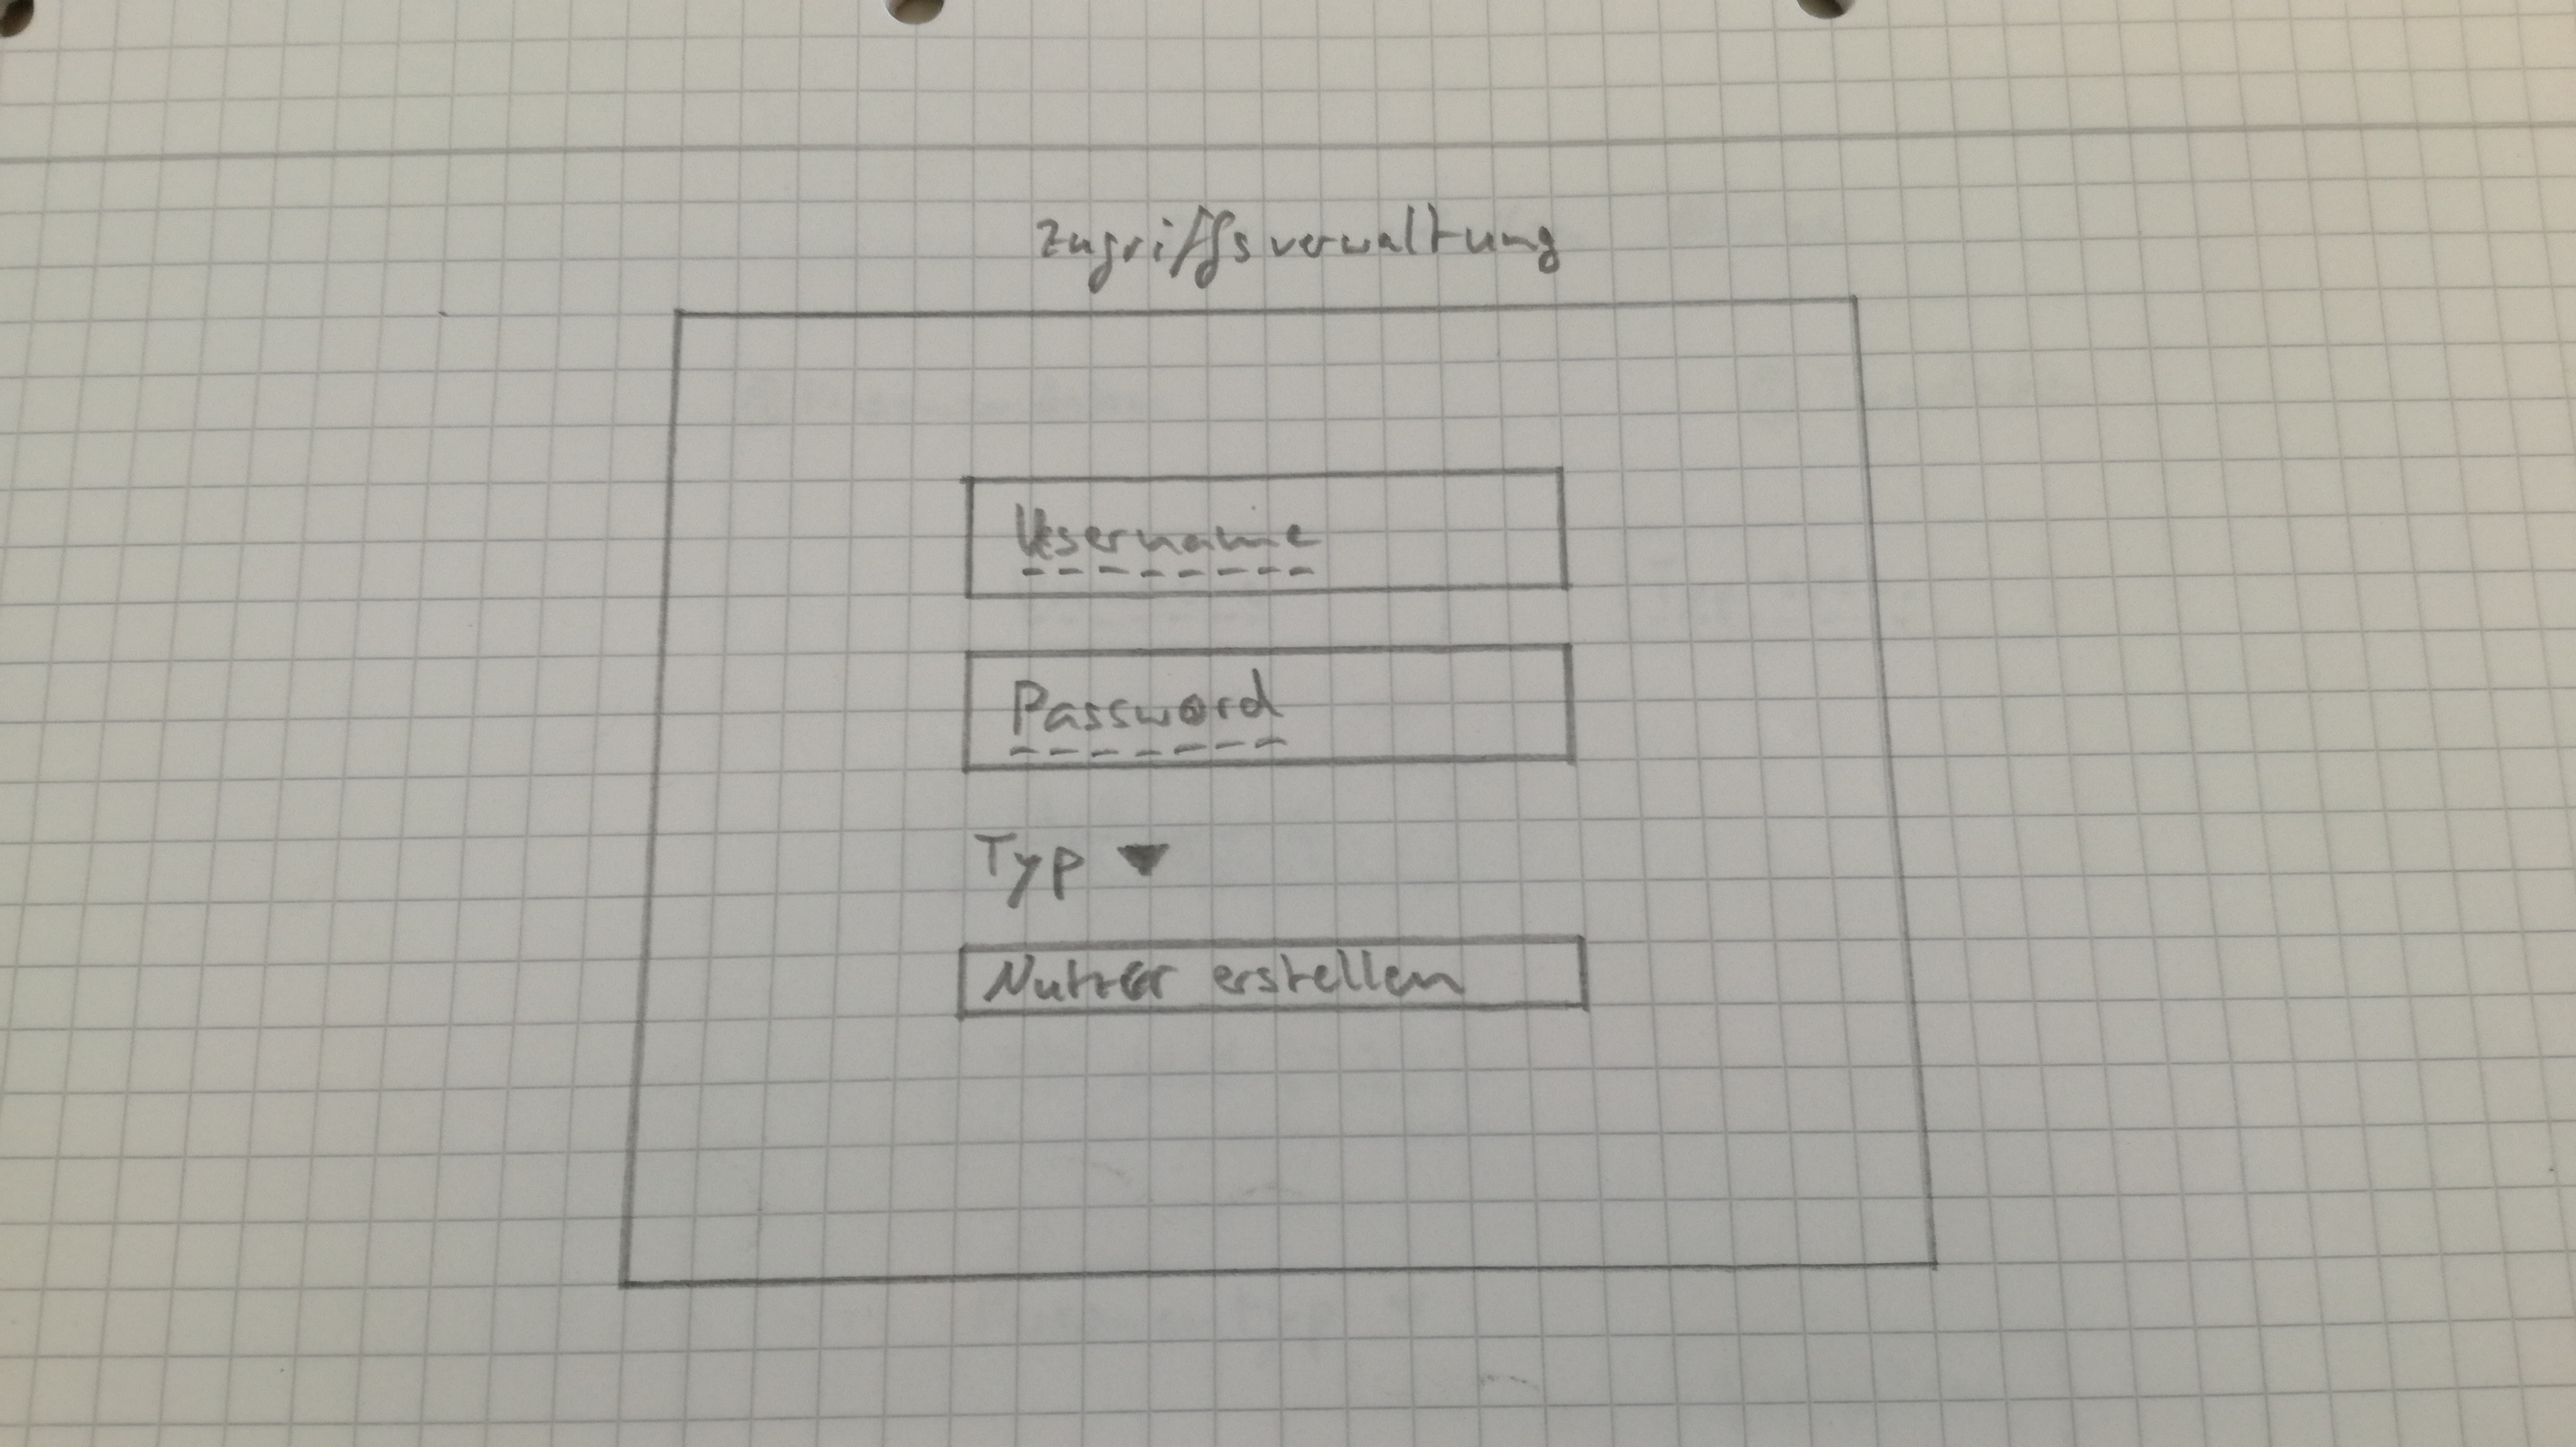 Zugriffsverwaltung
Username
Password
Typ
Nutzer erstellen